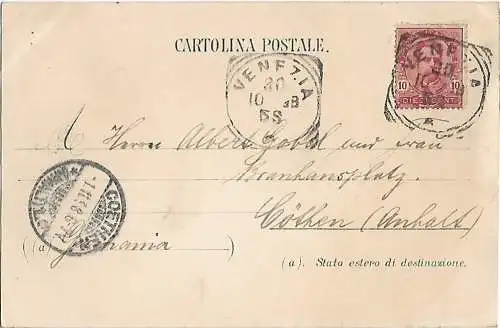 CARTOLINA POSTALE.
VENEZIA
30
10 98
5S
VENEZIA
30
10
10
DIECI CENT
COETHEN
1.11.98.6-7N.
Herrn Albert Gobbel und Frau
Branhausplatz.
Cöthen (Anhalt)
(a) Germania)
(a). Stato estero di destinazione.